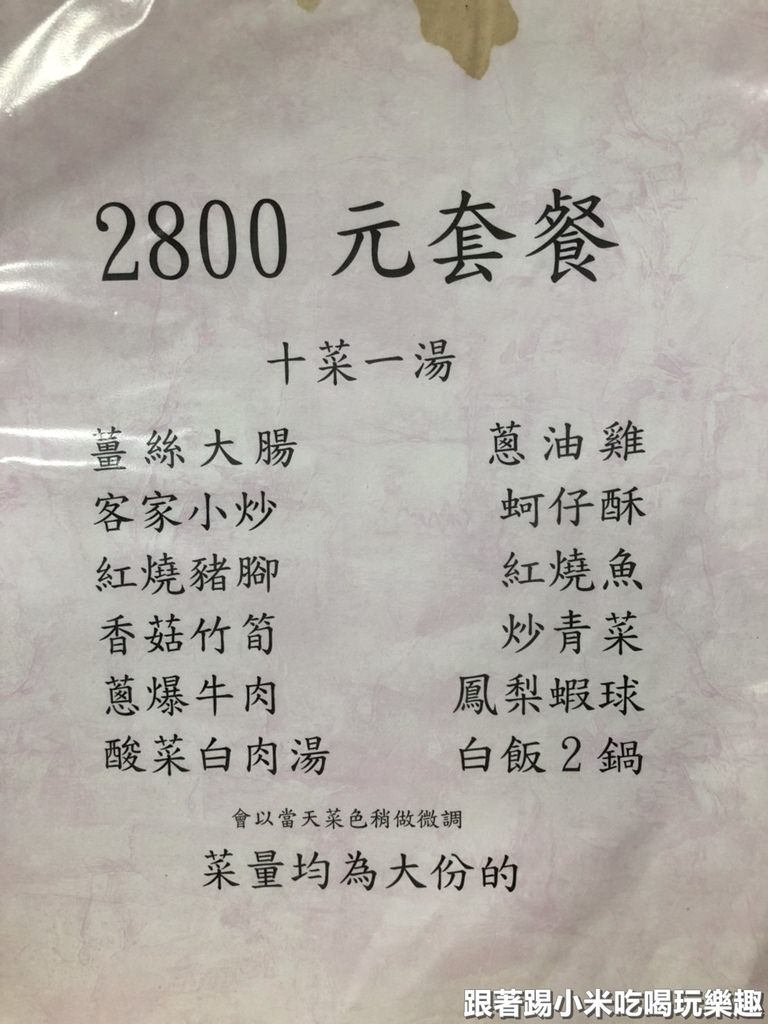 2800 元套餐
十菜一湯
薑絲大腸 蔥油雞
客家小炒 蚵仔酥
紅燒豬腳 紅燒魚
香菇竹筍 炒青菜
蔥爆牛肉 鳳梨蝦球
酸菜白肉湯 白飯2鍋
會以當天菜色稍做微調
菜量均為大份的
跟著踢小米吃喝玩樂趣